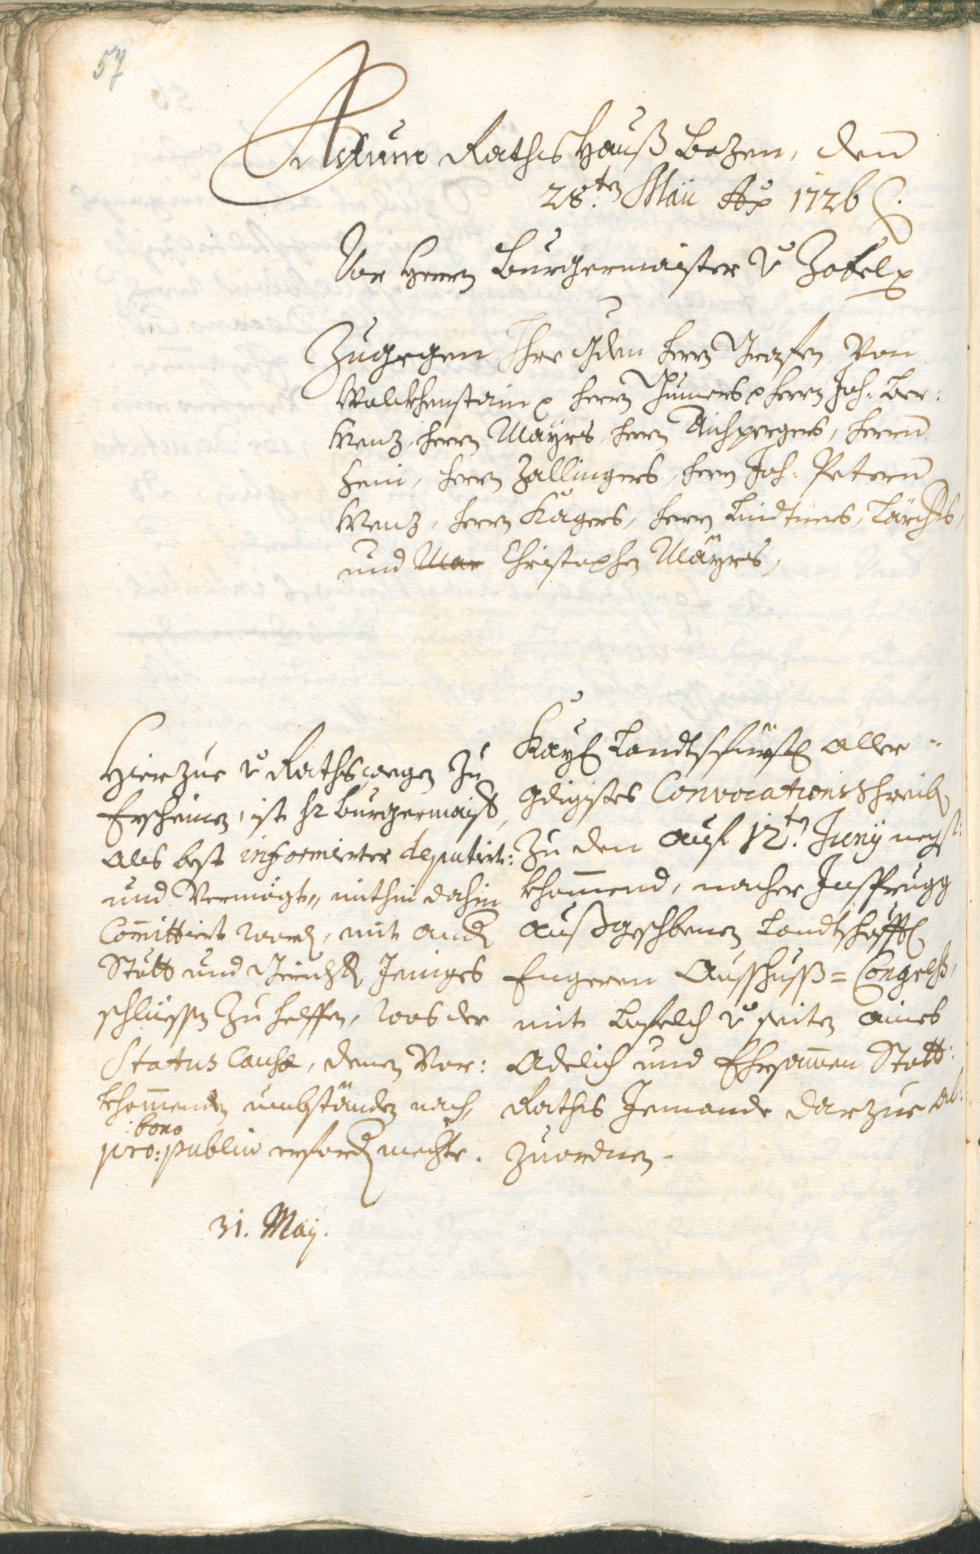 57
Actum Rathshauß Bozen, den
28.ten Maii Ao 1726
Vor Herrn Burgermaister v Zobel
Zugegen Ihre Gden herrn Grafen Von
Wolckhenstain herrn Gumers herrn Joh: Ber:
Wenz, herrn Mayrs, herrn Aichpergers, herrn
herrn Zallingers, herrn Joh: Petern
Wenz, herrn Kagers, herrn Lindtners,
und Mar Christophen Mayrs,
Hierzue v Rathswegen zu
Erscheinen, ist Hr Burgermaist,
als best informierter deputirt:
und Vermögt, mithin dahin
Committiert word, mit and
Stött und Gericht Jeniges
schliessen zu helffen, was der
Status Causæ, denen Vor:
khommenden umbständen nach,
: bono
pro: publico erford mechte.
31. Maÿ.
Kayl Landtsfürstl aller
gdigistes Convocations Schreiben
Zu den auf 12.ten Junÿ negst
khommend, nacher Insprugg
außgeschribenen Landtschafftl
Engeren Ausschuss = Congress,
mit befelch v seiten aines
Adelich und Ehrsammen Statt:
Raths Jemande darzue ab:
zuordnen.